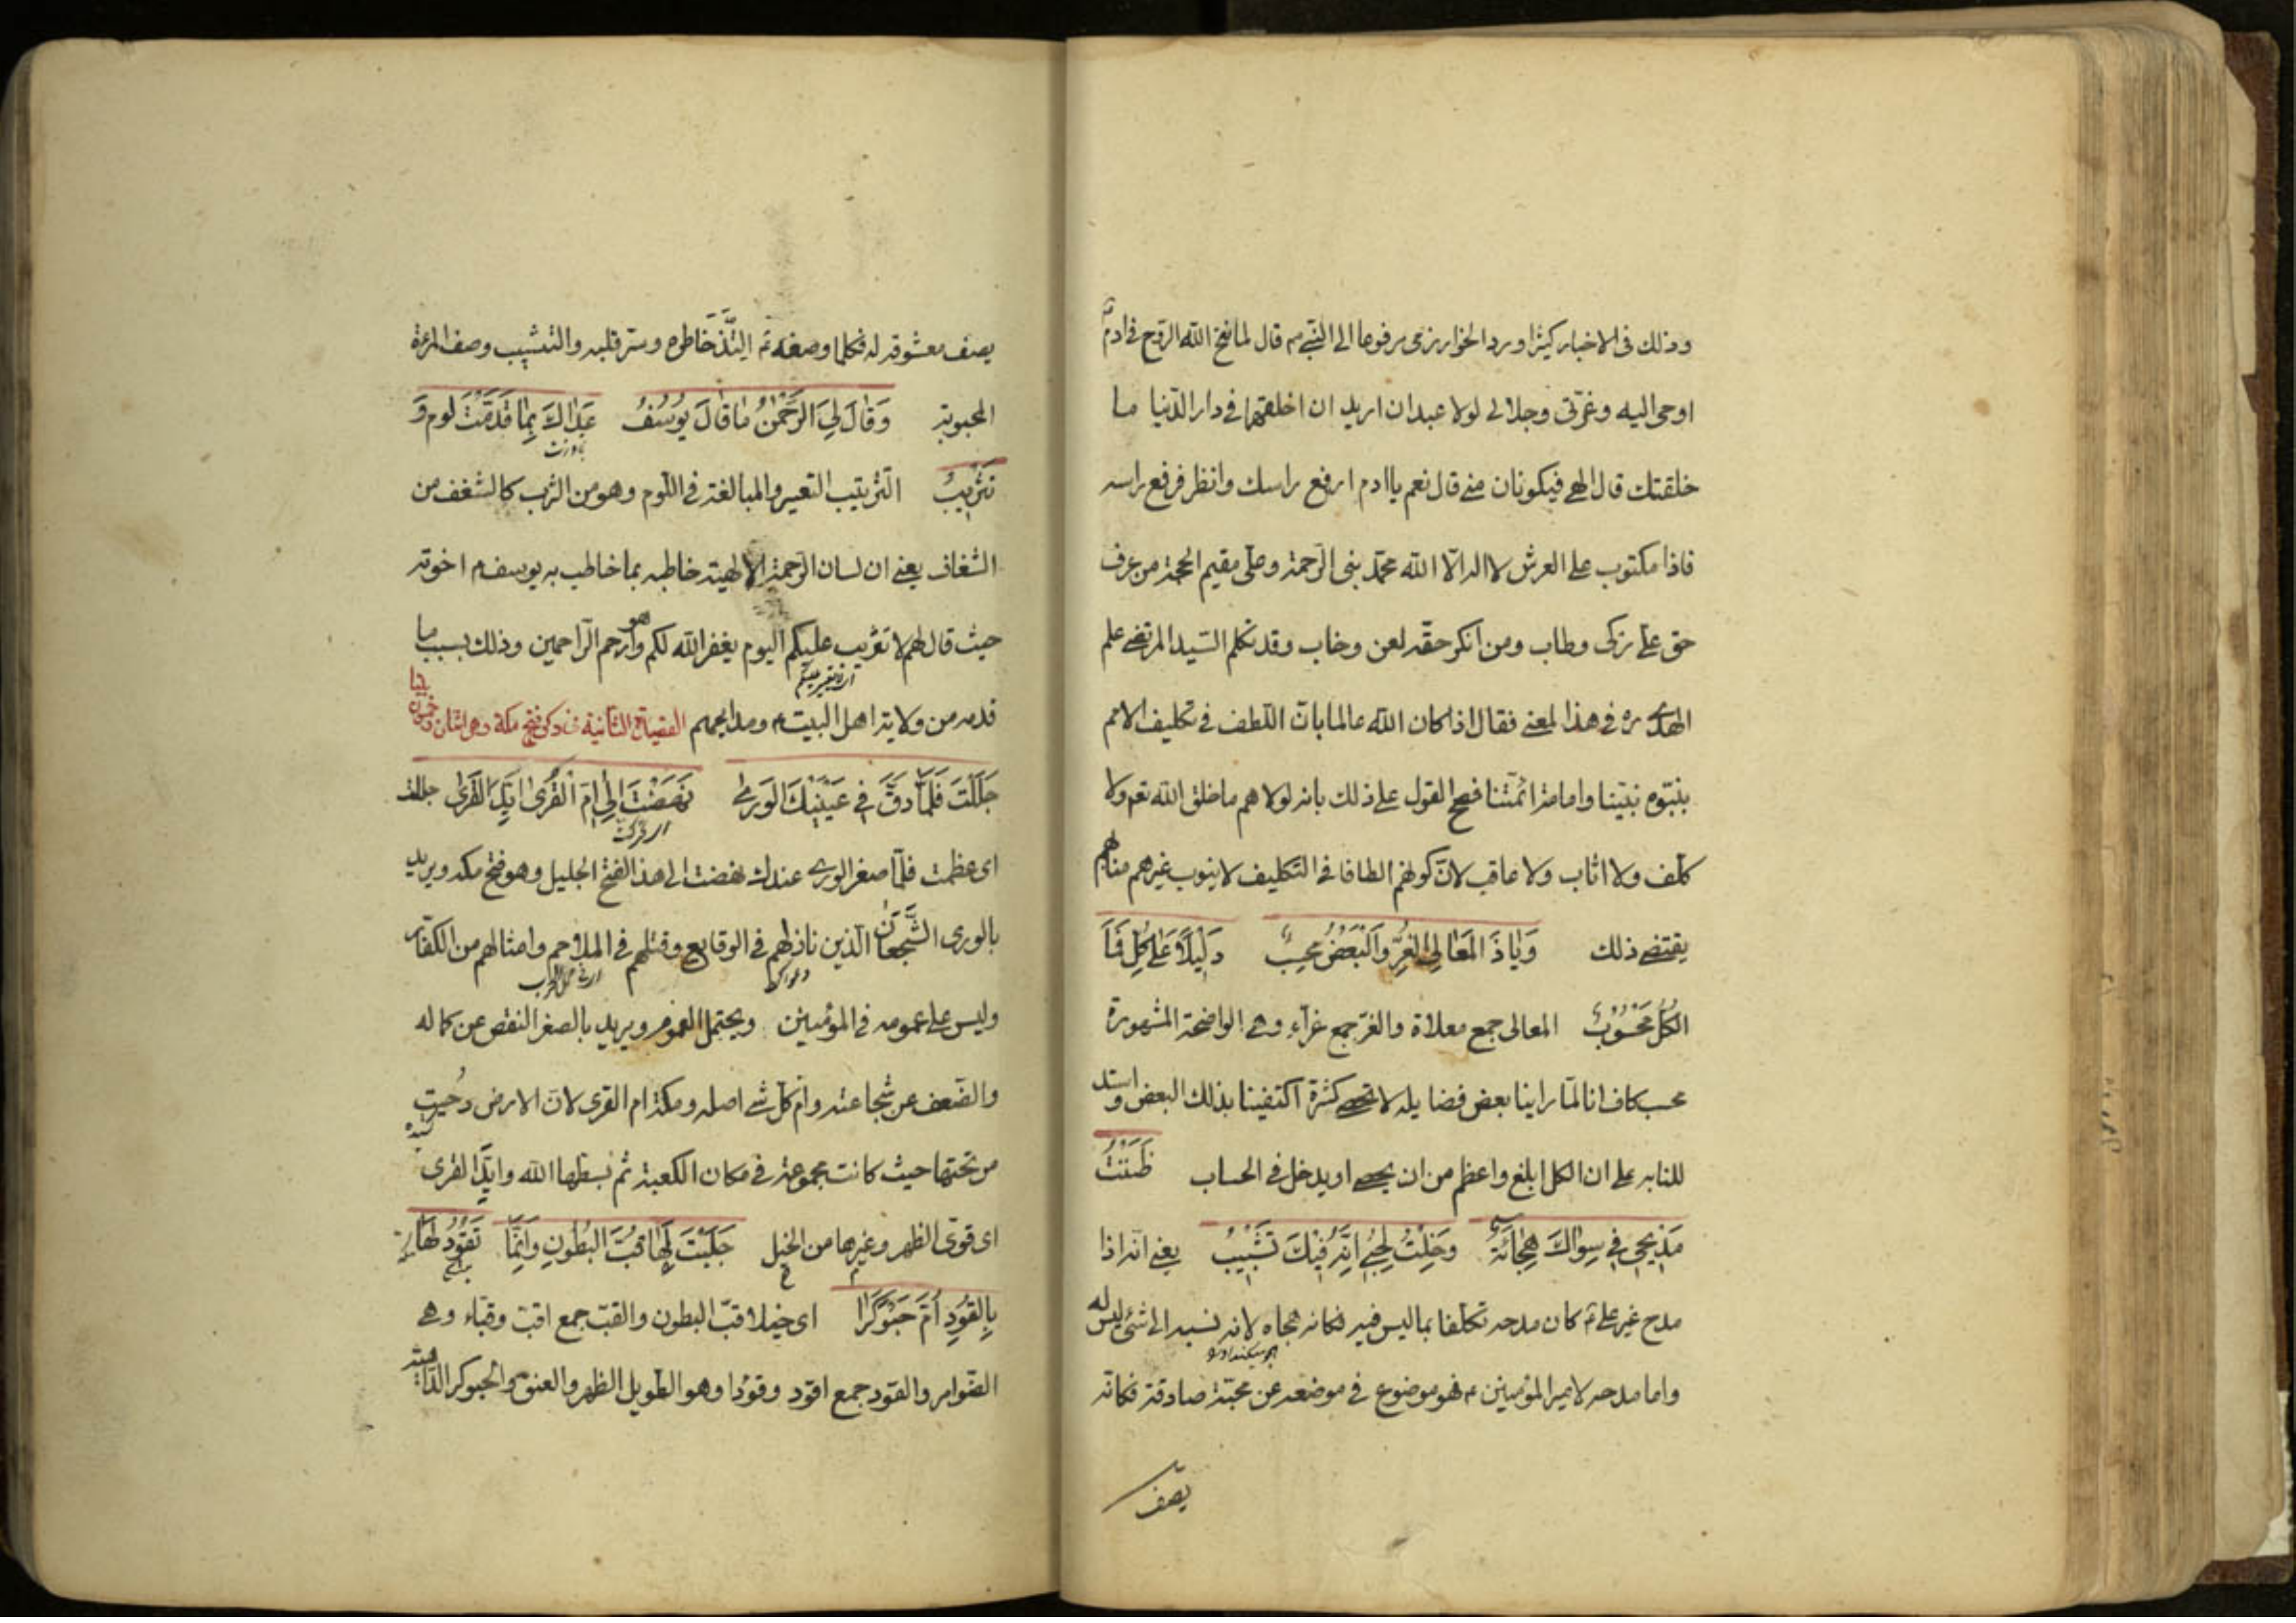 وذلك فى الاخبار كثيرا ورد الخوارزمى مرفوعا الى النبى م قال لما نفخ الله الروح فى ادم
اوحى اليه وعزتى وجلالى لولا عبدان اريد ان اخلقهما فى دار الدنيا ما
خلقتك قال الهى فيكونان منى قال نعم يا ادم ارفع راسك وانظر فرفع راسه
فاذا مكتوب على العرش لا اله الا الله محمد نبى الرحمة وعلى مقيم الحجة من عرف
حق على زكى وطاب ومن انكر حقه لعن وخاب وقد تكلم السيد المرتضى علم
الهدى ره فى هذا المعنى فقال اذا كان الله عالما بان اللطف فى تكليف الامم
بنبوه نبينا وامامة ائمتنا فصح القول على ذلك بانه لولاهم ما خلق الله تعم ولا
كلف ولا اثاب ولا عاقب لان كونهم الطافا فى التكليف لا ينوب غيرهم منابهم
يقتضى ذلك وَيَاذَ المَعَالِى الغُرِّ وَالبَعْضُ مُحْسِبٌ دَلِيلًا عَلى كُلٍ فَمَا
الكُلُّ مَحْسُوبُ المعالى جمع معلاة والغر جمع غراء وهى الواضحة المشهورة
محسب كاف انا لما راينا بعض فضايله لا تحصى كثرة اكتفينا بذلك البعض واستد
للنا به على ان الكل ابلغ واعظم من ان يحصى او يدخل فى الحساب ظَنَنْتُ
مَدْيِحى فِى سِوَاكَ هِجَائَةً وَخِلْتُ مَدِيحِى اَنَّهُ فِيكَ تَشْبِيبُ يعنى انه اذا
مدح غير على م كان مدحه تكلفا بما ليس فيه فكانه هجاه لانه نسبه الى شئ ليس له
واما مدحه لامير المؤمنين م فهو موضوع فى موضعه عن محبة صادقة فكانه
يصف
يصف معشوقه له فكلما وصفه م التذ خاطره وسر قلبه والتشبيب وصف المراة
المحبوبة وَقَالَ لِىَ الرَّحْمٰنُ مَا قَالَ يُوسُفُ عَدَاكَ بِمَا قَدَّمْتَ لوم وَ
تَثْرِيبُ التثريب التعيير والمبالغة فى اللوم وهو من الثرب كالشغف من
الشغاف يعنى ان لسان الرحمة الالهية خاطبه بما خاطب به يوسف م اخوته
حيث قال لهم لا تثريب عليكم اليوم يغفر الله لكم وهو ارحم الراحمين وذلك بسبب ما
قدمه من ولاية اهل البيت م ومدايحهم القصيدة الثانية فى ذكر فتح مكة وهى اثنان وخمسون بيتا
جَلَلْتَ فَلَمَّا دَقَّ فِى عَيْنِيكَ الوَرَى نَهَضْتَ اِلى اُمِّ القُرى اَيِّدَ القَرٰى جللت
اى عظمت فلما صغر الورى عندك نهضت الى هذا الفتح الجليل وهو فتح مكه ويريد
بالورى الشجعان الذين نازلهم فى الوقايع وقتلهم فى الملاحم وامثالهم من الكفار
وليس على عمومه فى المؤمنين ويحتمل العموم ويريد بالصغر النقص عن كماله
والضعف عن شجاعته وام كل شى اصله ومكة ام القرى لان الارض دحيت
من تحتها حيث كانت مجموعة فى مكان الكعبة ثم بسطها الله وايد القرى
اى قوى الظهر وغيرها من الخيل جَلَبْتَ لَهَا قُبَّ البُطُونِ وَاِنَّمَا تَقُودُ لَهَا
بِالقُودِ اُمَّ حَبَوْكَرا اى خيلا قب البطون والقب جمع اقب وقباء وهى
الضوامر والقود جمع اقود وقودا وهو الطويل الظهر والعنق والحبوكر الداهية